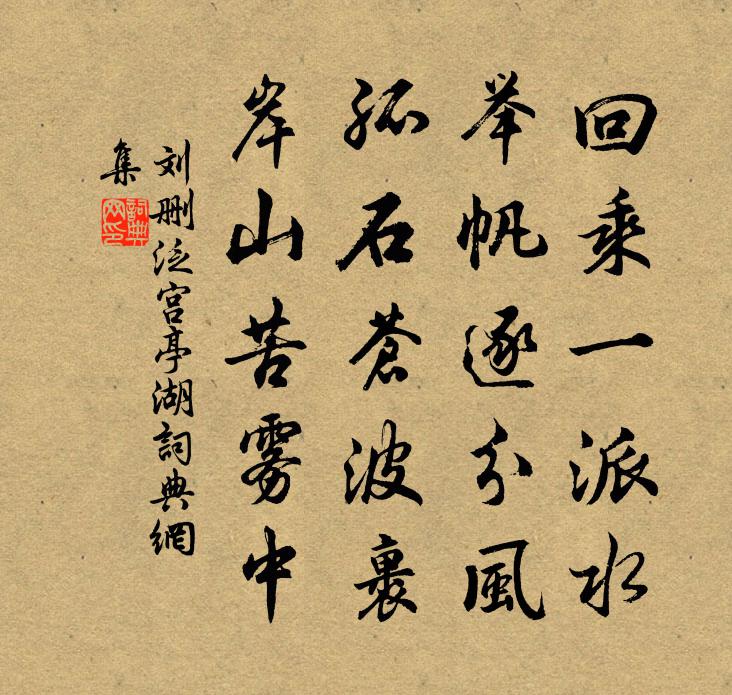 回乘一派水
举帆逐分風
孤石蒼波裏
岸山苦雾中
刘删泛宫亭湖詞典網
集
詞典網印